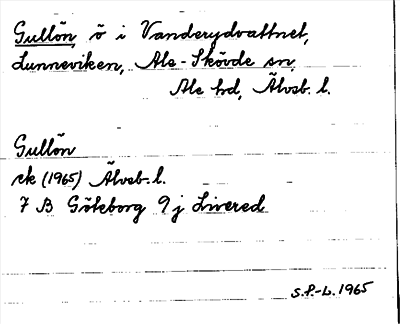 Gullön, ö i Vanderydvattnet,
Lunneviken, Ale-Skövde sn,
Ale hd, Älvsb. l.
Gullön
ek (1965) Älvsb. l.
7 B Göteborg 9 j Livered
S.P.-L. 1965